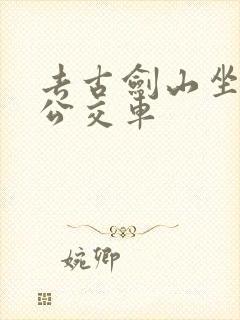 考古劍山坐
公交車
婉卿